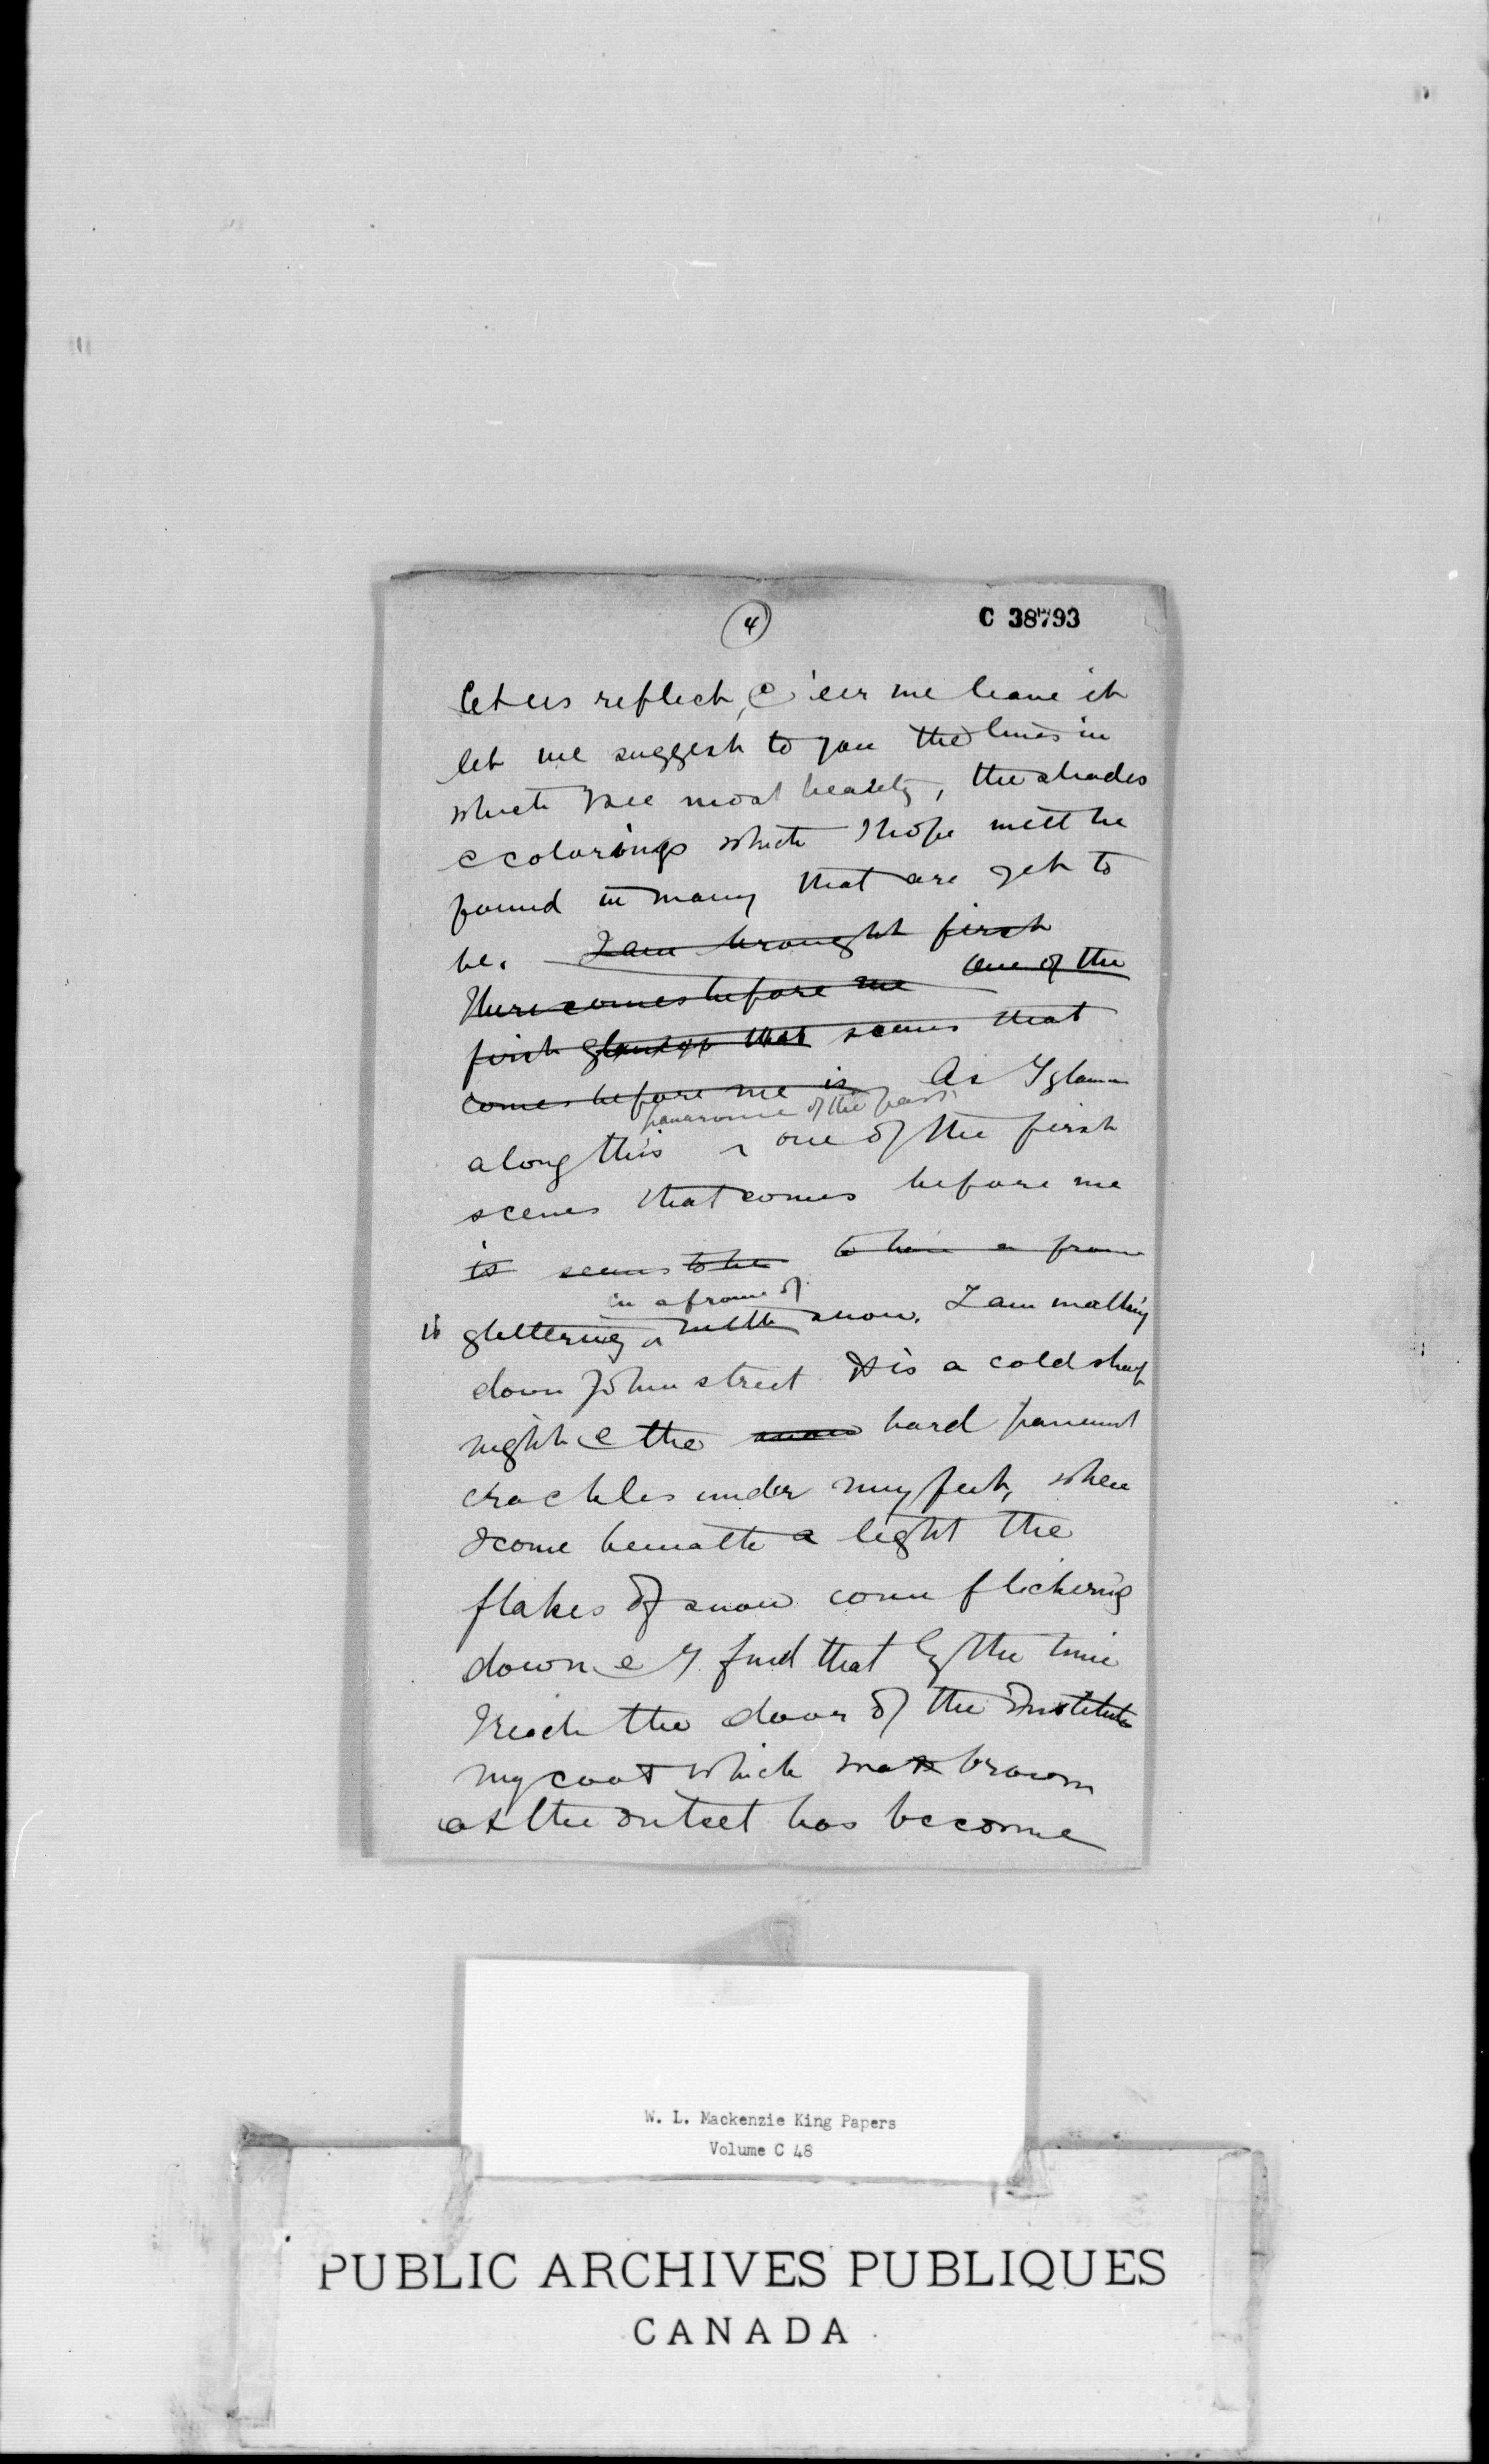 4
C 38793
let us reflect, & 'eer we leave it
let me suggest to you the lines in
which I see most beauty, the shades
& colorings which I hope will be
found in many that are yet to
be. I am brought first
There comes before me One of the
first glances that scenes that
comes before me is As I glance
panorama of the past,
along this ^ one of the first
scenes that comes before me
is seems to be to have a frame
in a frame of
is glittering ^ white snow. I am walking
down John street It is a cold sharp
night & the snow hard pavement
crackles under my feet, when
I come beneath a light the
flakes of snow come flickering
down & I find that by the time
I reach the door of the Institute
my coat which was brown
at the outset has become
W. L. Mackenzie King Papers
Volume C 48
PUBLIC ARCHIVES PUBLIQUES
CANADA